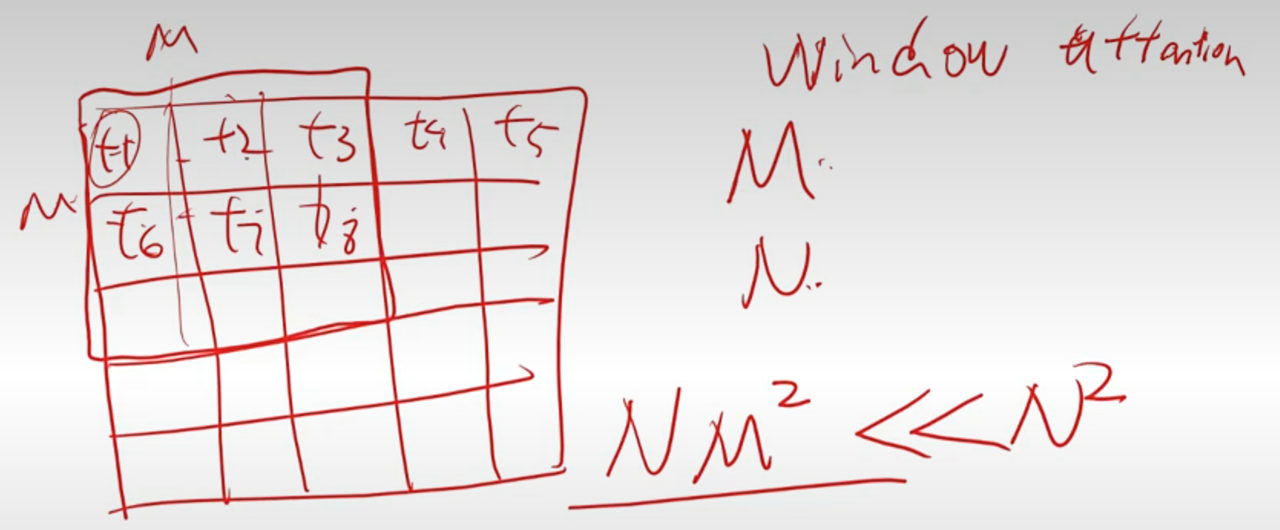 M
t1 t2 t3 t4 t5
M
t6 t7 t8
Window attantion
M
N
NM² << N²